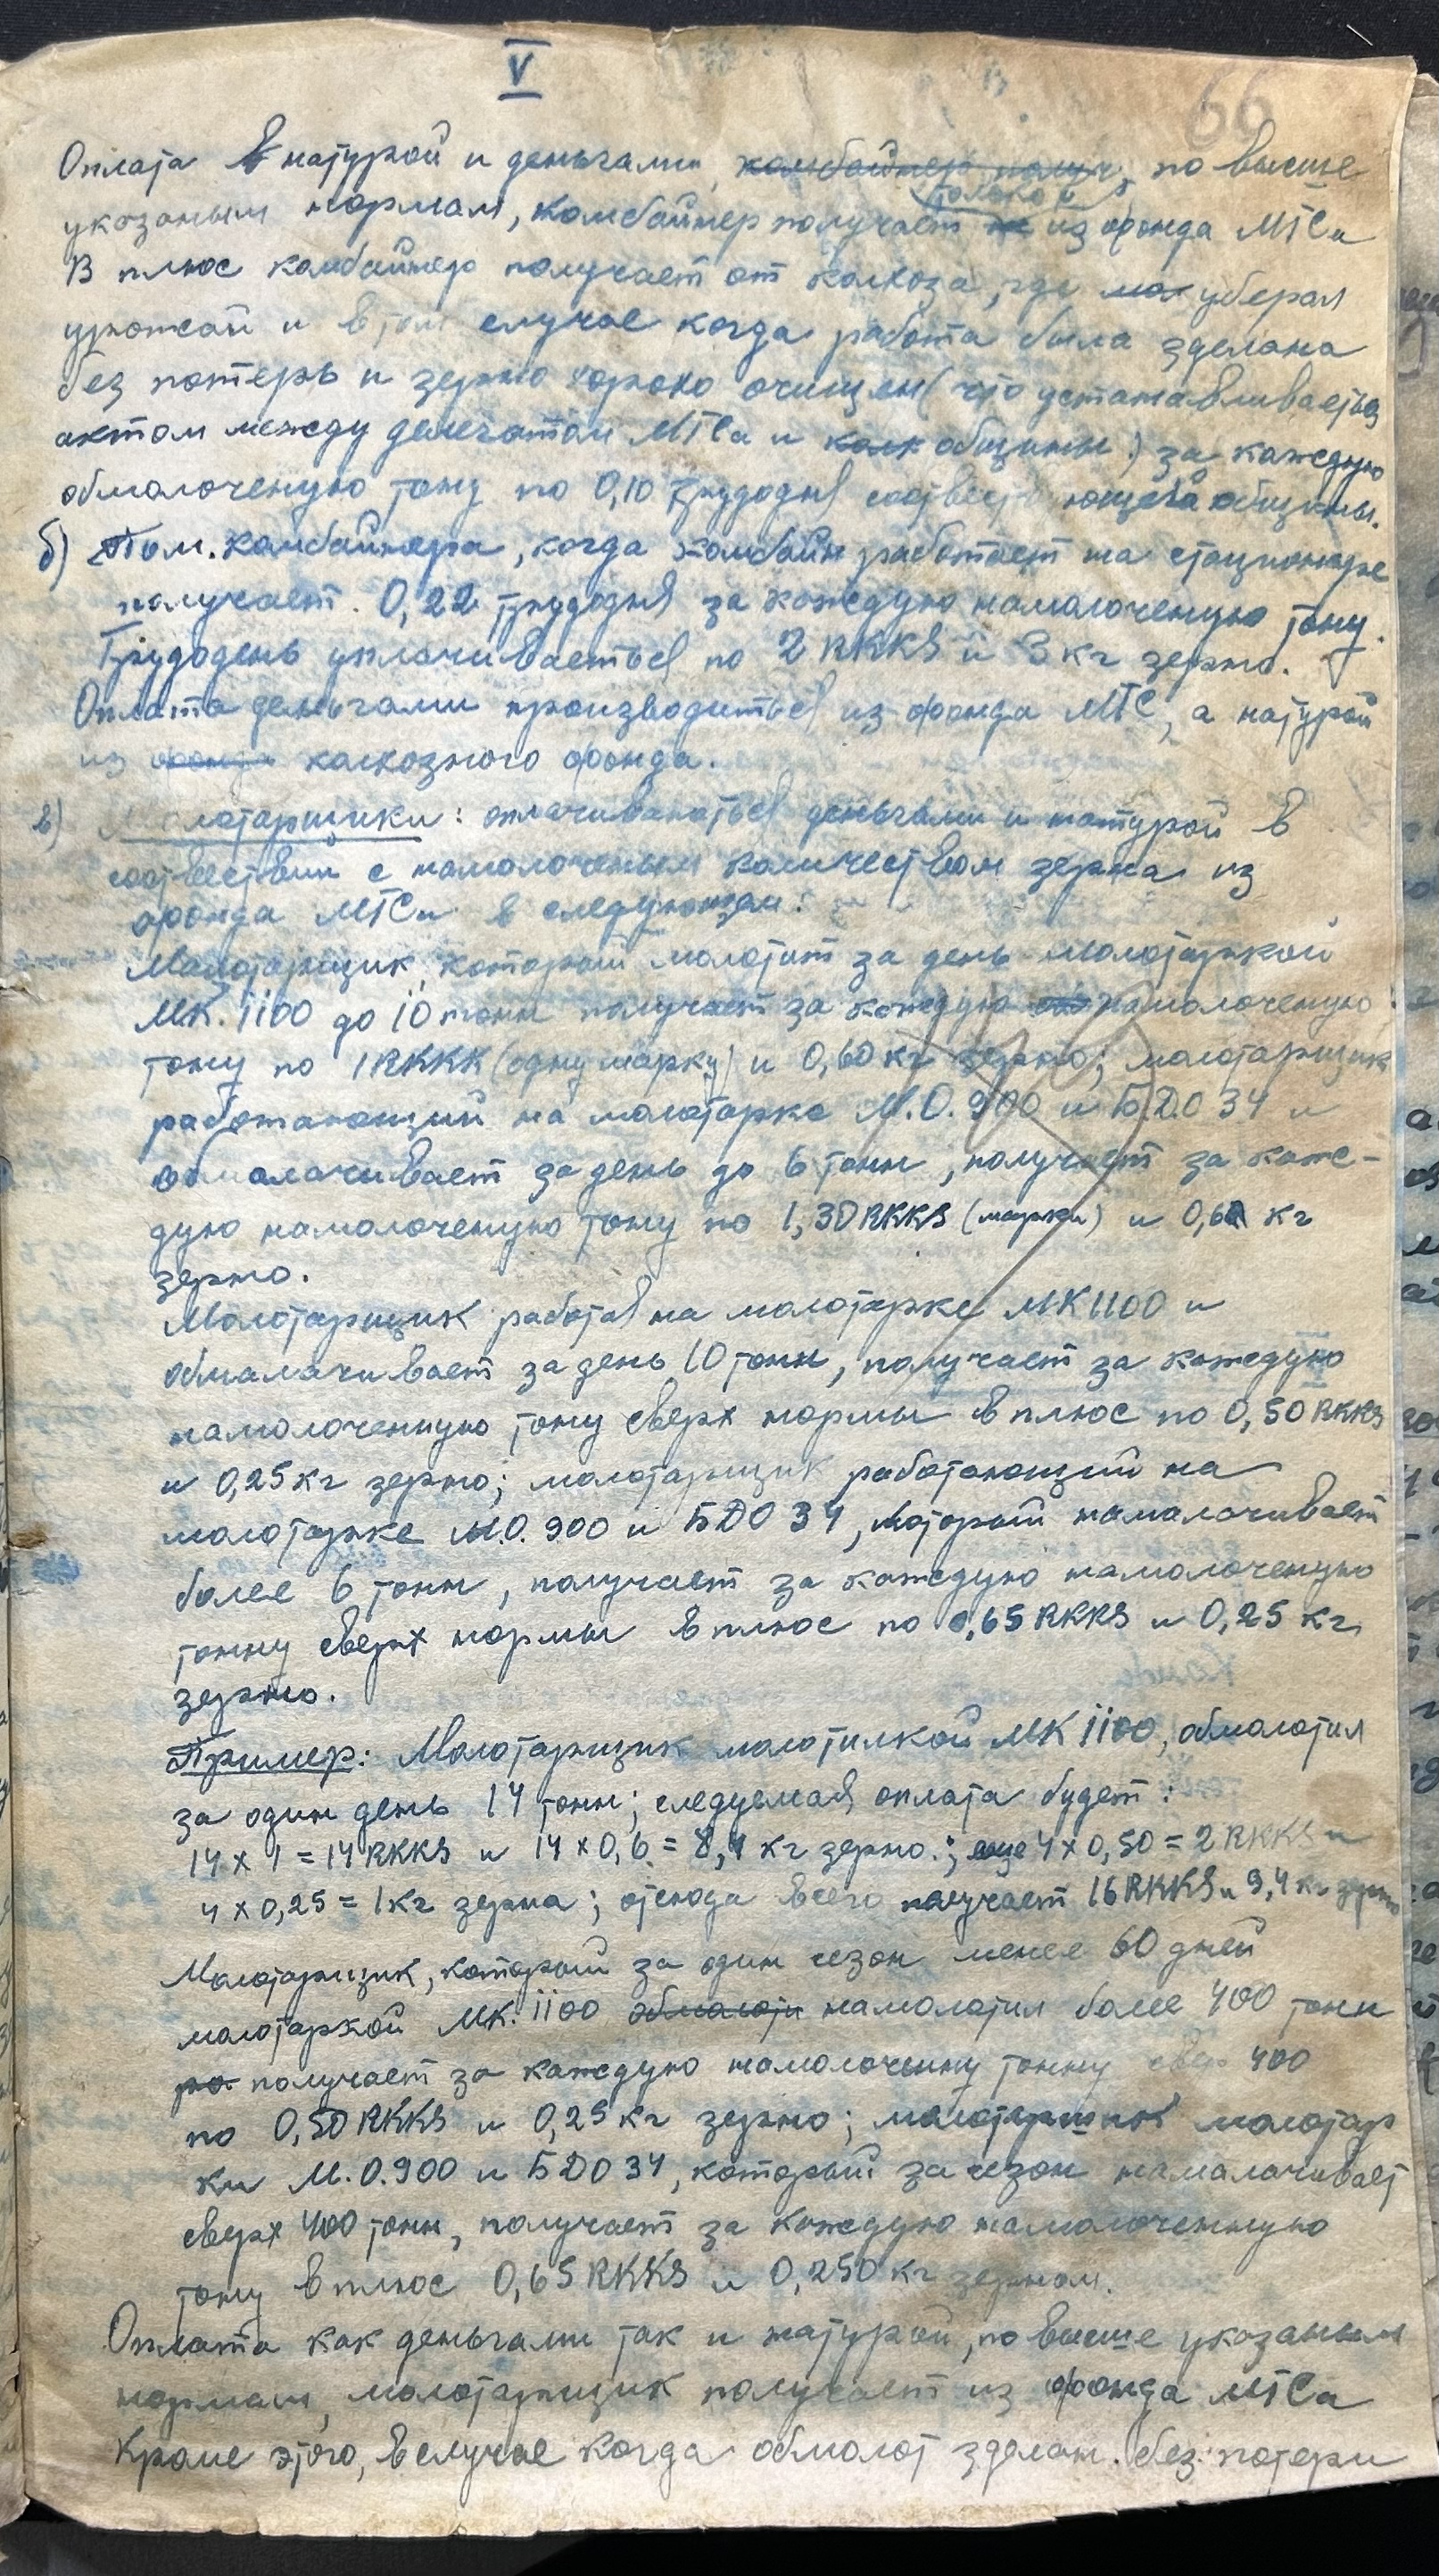 V
66
Оплата в натурой и деньгами, комбайнер получ, по высше
только и
указаным нормам, комбайнер получает не из фонда МТСа
В плюс комбайнер получает от колхоза, где мол уберал
урожай и в том случае когда работа была зделана
без потерь и зерно хорошо очищен (что устанавливаеться
актом между делегатом МТСа и колх общины) за каждую
обмолоченую тону по 0,10 трудодня соотвестующей общины.
б) Пом. комбайнера, когда комбайн работает на стационаре
получает. 0,22 трудодня за каждую намолоченую тону.
Трудодень уплачиваеться по 2 RKKS и 3 кг зерно.
Оплата деньгами производиться из фонда МТС, а натурой
из фонда колхозного фонда.
в) Молотарщики: оплачиваються деньгами и натурой в
соотвествии с намолоченым количеством зерна из
фонда МТСа в следующем:
Молотарщик, который молотит за день молотаркой
МК. 1100 до 10 тонн получает за каждую намолоченую
тону по 1 RKKK (одну марку) и 0,60 кг зерно; молотарщик
работающий на молотарке М.О. 900 и БДО 34 и
обмолачивает за день до 6 тонн, получает за каж-
дую намолоченую тону по 1,30 RKKS (марки) и 0,60 кг
зерно.
Молотарщик работая на молотарке МК 1100 и
обмалачивает за день 10 тонн, получает за каждую
намолоченную тону сверх нормы в плюс по 0,50 RKKS
и 0,25 кг зерно; молотарщик работающий на
молотарке М.О. 900 и БДО 34, который намалачивает
более 6 тонн, получает за каждую намолоченую
тонну сверх нормы в плюс по 0,65 RKKS и 0,25 кг
зерно.
Пример: Молотарщик молотилкой МК 1100, обмолотил
за один день 14 тонн; следуемая оплата будет:
14 х 1 = 14 RKKS и 14 х 0,6 = 8,4 кг зерно.; еще 4 х 0,50 = 2 RKKS и
4 х 0,25 = 1 кг зерна; отсюда всего получает 16 RKKS и 9,4 кг зерно
Молотарщик, который за один сезон менее 60 дней
молотаркой МК. 1100 обмолоти намолотил более 400 тонн
ра получает за каждую намолоченну тонну сверх 400
по 0,50 RKKS и 0,25 кг зерно; молотарщик молотар
ки М.О. 900 и БДО 34, который за сезон намалачивает
сверх 400 тонн, получает за каждую намолоченную
тону в плюс 0,65 RKKS и 0,250 кг зерном.
Оплата как деньгами так и натурой, по высше указаным
нормам, молотарщик получает из фонда МТСа
Кроме этого, в случае когда обмолот зделан. без потери